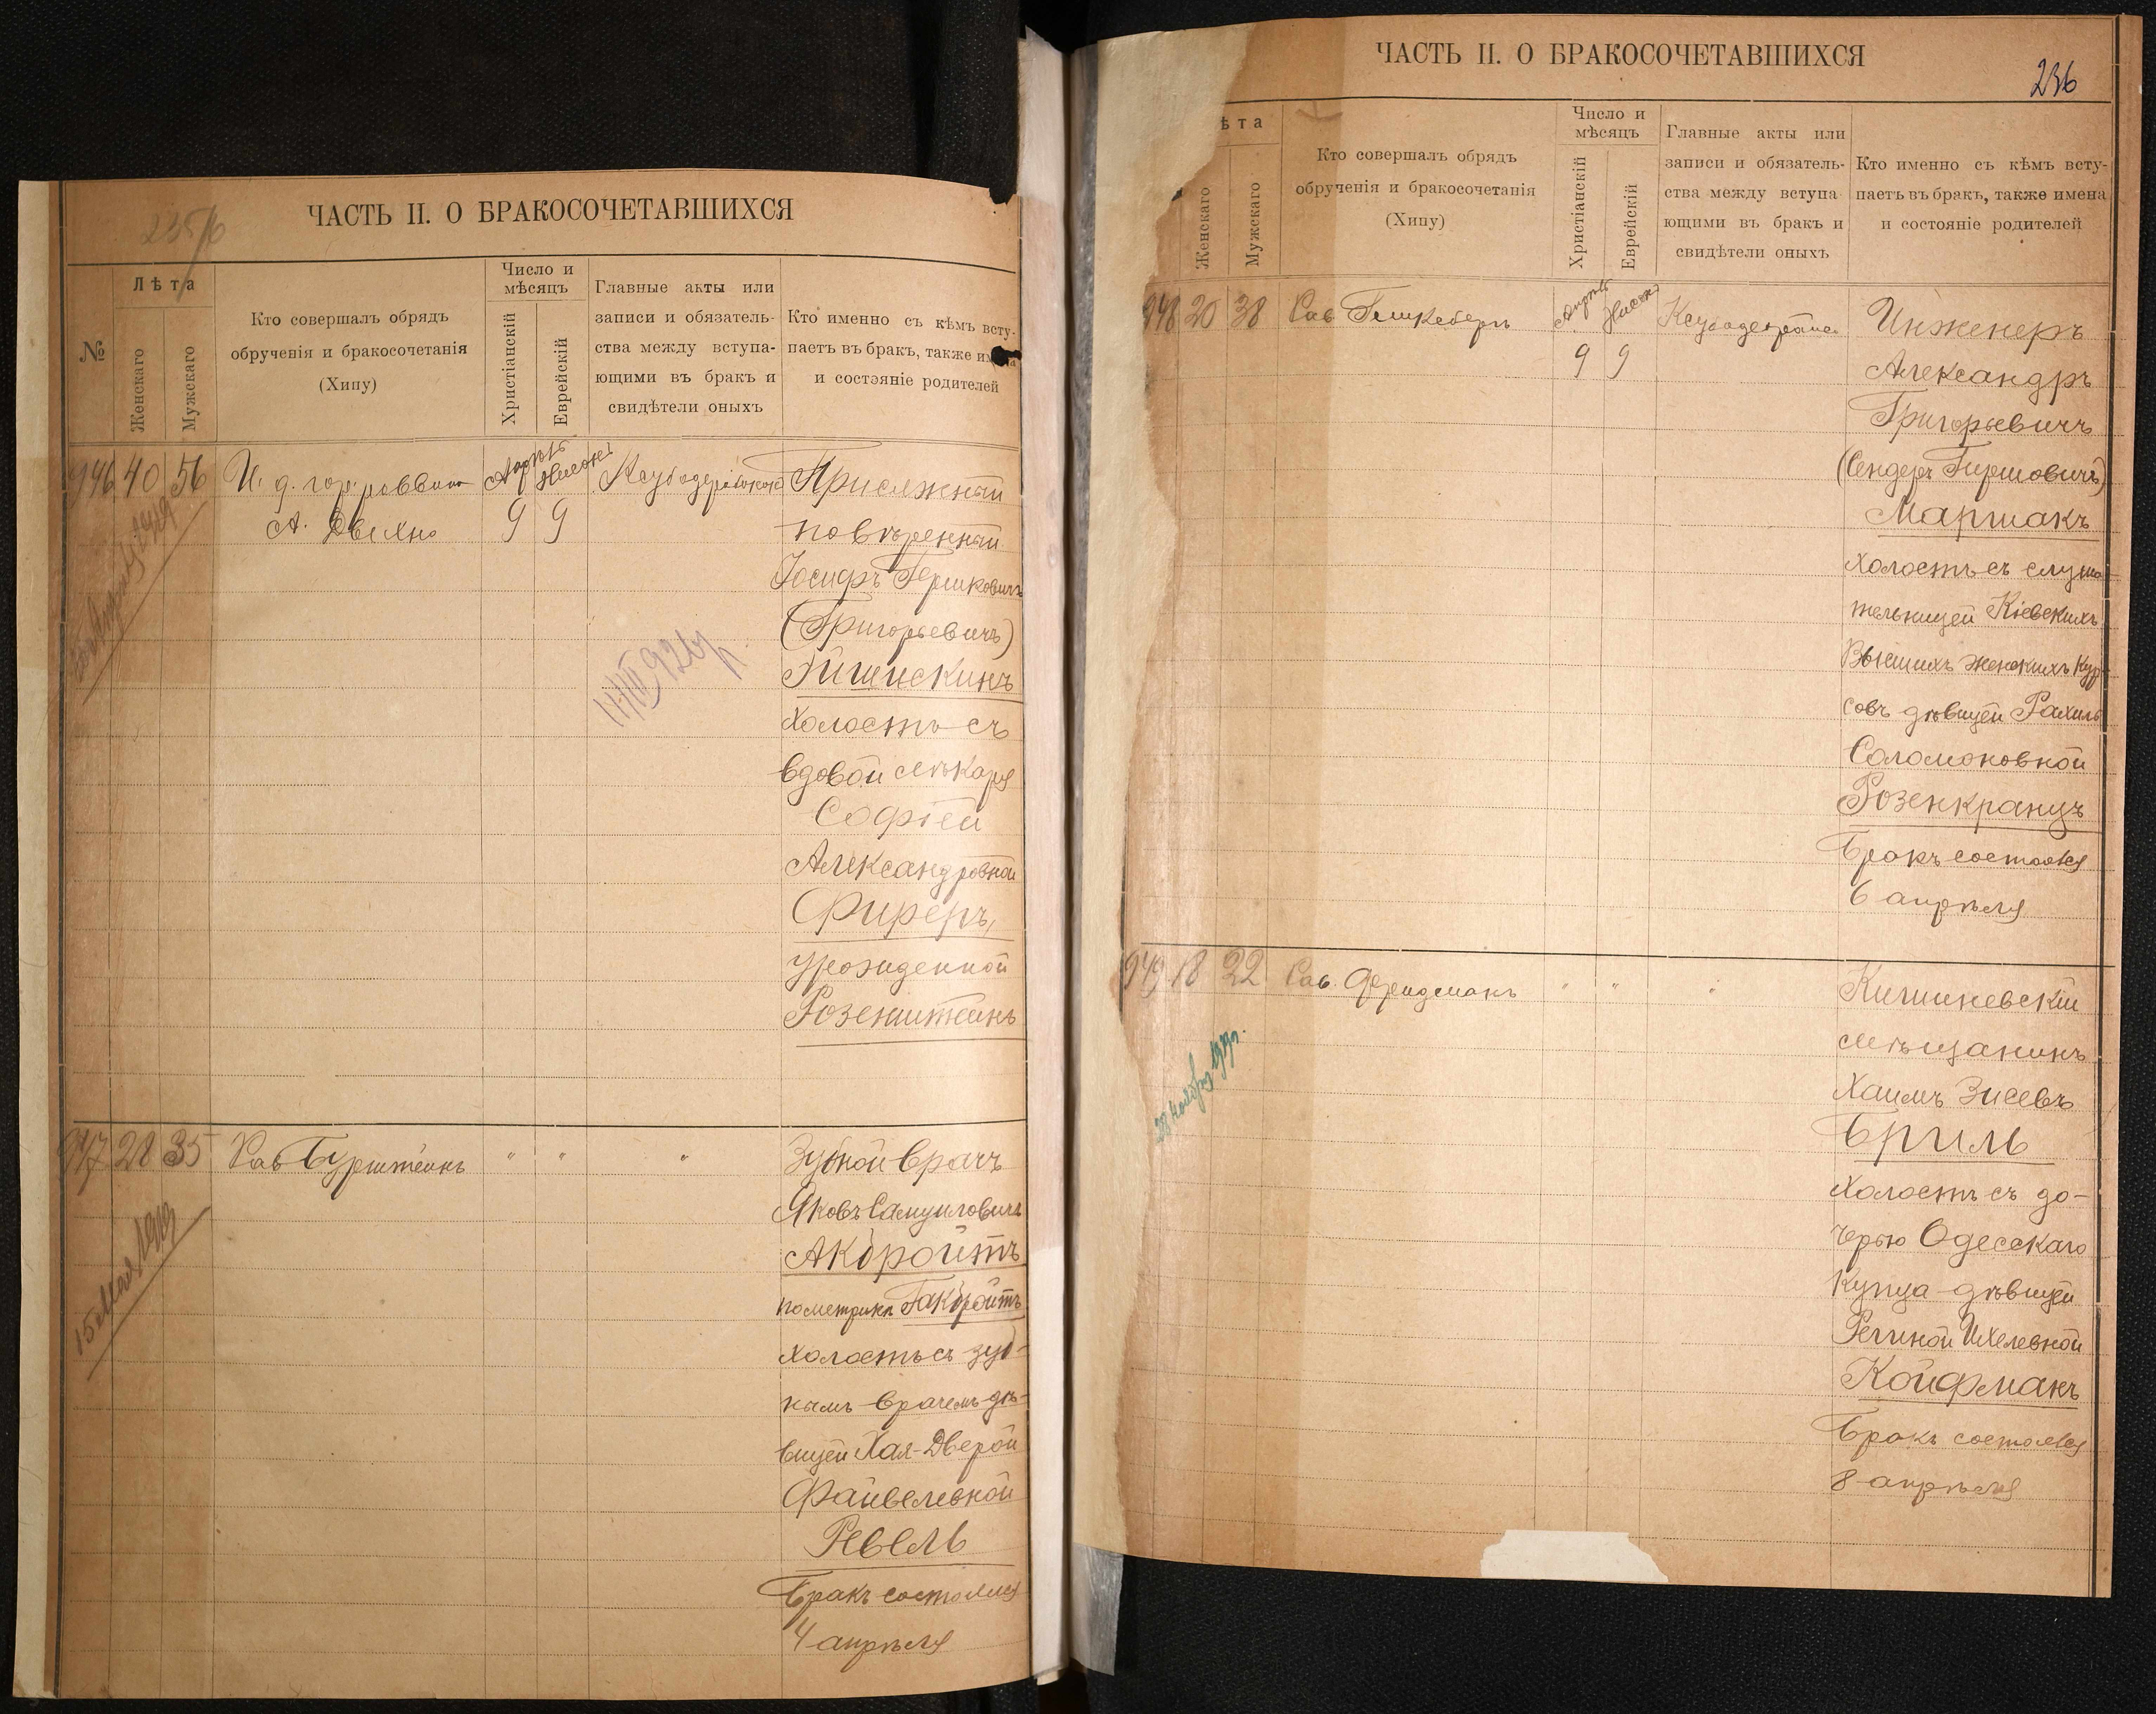 235/б
ЧАСТЬ II. О БРАКОСОЧЕТАВШИХСЯ
№
Лѣта
Женскаго
Мужскаго
Кто совершалъ обрядъ
обрученія и бракосочетанія
(Хипу)
Число и
мѣсяцъ
Христіанскій
Еврейскій
Главные акты или
записи и обязатель-
ства между вступа-
ющими въ бракъ и
свидѣтели оныхъ
Кто именно съ кѣмъ всту-
паетъ въ бракъ, также
и состояніе родителей
946 40 56
И. д. гор. раввина
А.
Апрѣль Нисонъ
9 9
Присяжный
повѣренный
Іосифъ Гершковичъ
(Григорьевичъ)
холостъ съ
вдовой лѣкаря
Софіей
Александровной
Фиреръ,
урожденной
Розенштейнъ
947 28 35
Рав Бурштейнъ
" " "
Зубной врачъ
Яковъ Самуиловичъ
Акбройтъ
по метрикѣ Гакбройтъ
холостъ съ зуб-
нымъ врачемъ дѣ-
вицей Хая-Двейрой
Файвелевной
Ревель
Бракъ состоялся
4 апрѣля
15 мая 1919
ЧАСТЬ II. О БРАКОСОЧЕТАВШИХСЯ
236
ѣта
Женскаго
Мужскаго
Кто совершалъ обрядъ
обрученія и бракосочетанія
(Хипу)
Число и
мѣсяцъ
Христіанскій
Еврейскій
Главные акты или
записи и обязатель-
ства между вступа
ющими въ бракъ и
свидѣтели оныхъ
Кто именно съ кѣмъ всту-
паетъ въ бракъ, также имена
и состояніе родителей
948 20 38
Рав
Апрѣль Нисонъ
9 9
Инженеръ
Александръ
Григорьевичъ
(Сендеръ Гиршовичъ)
Маршакъ
холостъ съ слуша
тельницей Кіевскихъ
Высшихъ женскихъ Кур
совъ дѣвицей Рахиль
Соломоновной
Розенкранцъ
Бракъ состоялся
6 апрѣля
949 18 22
Рав. Фридманъ
" " "
Кишиневскій
мѣщанинъ
Хаимъ Зисевъ
Бриль
холостъ съ до-
черью Одесскаго
Купца дѣвицей
Региной Ихелевной
Койфманъ
Бракъ состоялся
8 апрѣля